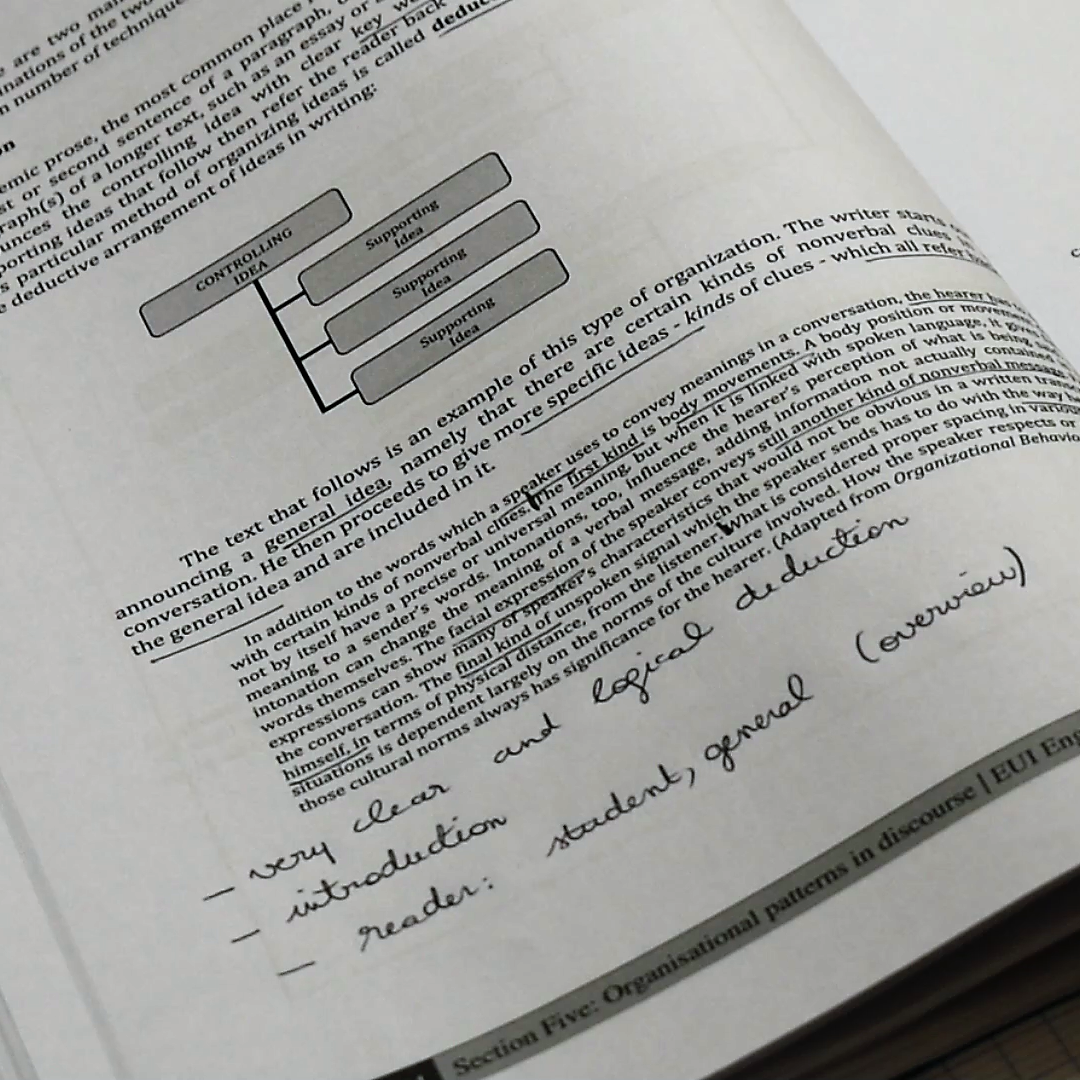 are two main
inations of the two
n number of technique
on
emic prose, the most common place
st or second sentence of a paragraph,
raph(s) of a longer text, such as an essay or
unces the controlling idea with clear key
porting ideas that follow then refer the reader back
s particular method of organizing ideas is called deduc
e deductive arrangement of ideas in writing:
CONTROLLING
IDEA
Supporting
Idea
Supporting
Idea
Supporting
Idea
The text that follows is an example of this type of organization. The writer starts
announcing a general idea, namely that there are certain kinds of nonverbal clues
conversation. He then proceeds to give more specific ideas - kinds of clues - which all refer
the general idea and are included in it.
In addition to the words which a speaker uses to convey meanings in a conversation, the hearer
with certain kinds of nonverbal clues. The first kind is body movements. A body position or movem
not by itself have a precise or universal meaning, but when it is linked with spoken language, it giv
meaning to a sender's words. Intonations, too, influence the hearer's perception of what is being
intonation can change the meaning of a verbal message, adding information not actually contained
words themselves. The facial expression of the speaker conveys still another kind of nonverbal mess
expressions can show many of speaker's characteristics that would not be obvious in a written tran
the conversation. The final kind of unspoken signal which the speaker sends has to do with the way
himself, in terms of physical distance, from the listener. What is considered proper spacing in various
situations is dependent largely on the norms of the culture involved. How the speaker respects or
those cultural norms always has significance for the hearer. (Adapted from Organizational Behavio
- very clear and logical deduction
- introduction
- reader: student, general (overview)
Section Five: Organisational patterns in discourse | EUI Eng